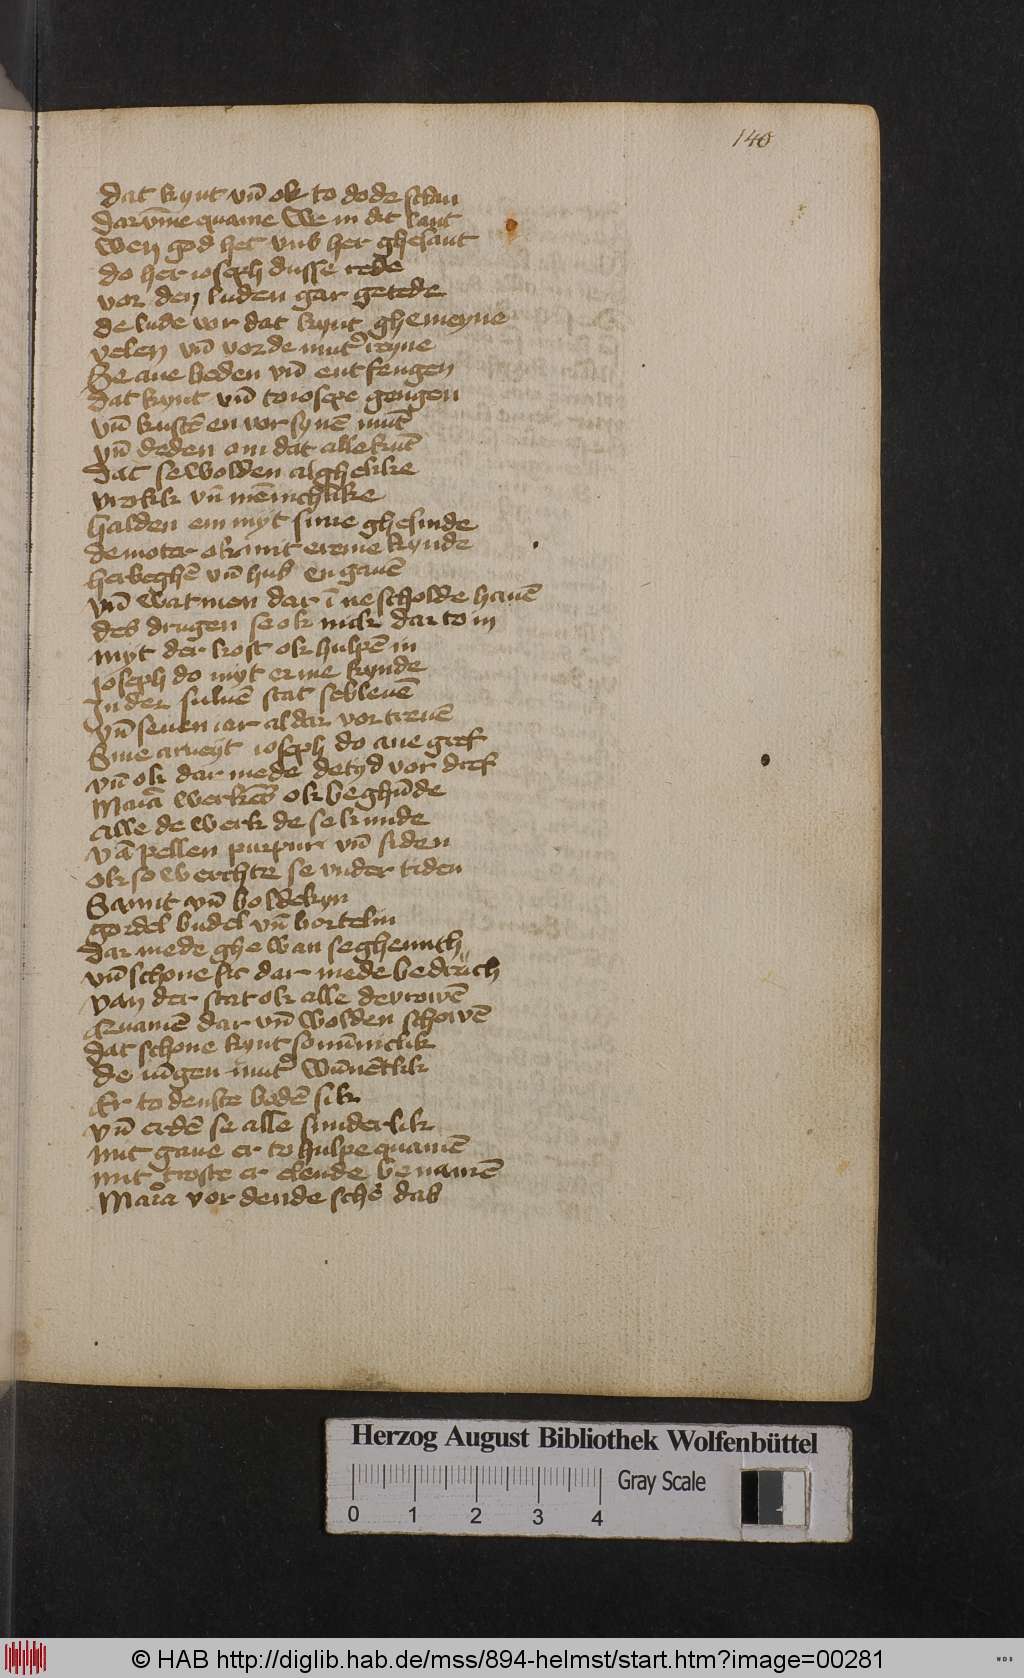 140
dat kynt vn̄ ok to dode sclan
darv̄me quame we in dit lant
wen god het vns her ghesant
do her ioseph dusse rede
vor den luden gar getede
de lude vor dat kynt ghemeyne
velen vn̄ vor de mut' reyne
Se ane beden vn̄ entfengen
dat kynt vn̄ to iosepe gengen
vn̄ kustē en vor synē mūt
vn̄ deden om dat alle kūt
dat se wolden alghelike
vrolik vn̄ mēnichlike
halden em myt sime ghesinde
de moter ok mit ereme kynde
herbeghē vn̄ hus en gauē
vn̄ wat men dar ī ne scholde hauē
des drugen se ok nicht dar to in
myt der kost ok hulpē in
ioseph do myt erme kynde
In der suluē stat se bleuē
vn̄ seuen iar al dar vortreuē
Sine arueyt ioseph do ane gref
vn̄ ok dar mede de tyd vor dref
Maria werkēs ok beghūde
alle de werk de se kunde
vā pellen purpur vn̄ siden
ok so werchte se vnder tiden
Samit vn̄ boldekyn
gordel budel vn̄ bortelin
dar mede ghe wan se ghenuch
vn̄ schone sic dar mede bedruch
van der stat ok alle de vrowē
Quamē dar vn̄ wolden schowē
dat schone kynt so mīnichlik
de iūgen mut' wūnētlik
Er to denste bodē sik
vn̄ erdē se alle sunderlik
mit gaue er to hulpe quamē
mit troste er elende benamē
Maria vor dende scho das
Herzog August Bibliothek Wolfenbüttel
Gray Scale
0 1 2 3 4
© HAB http://diglib.hab.de/mss/894-helmst/start.htm?image=00281